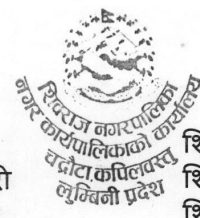 शिवराज नगरपालिका
नगर कार्यपालिकाको कार्यालय
चन्द्रौटा कपिलवस्तु
लुम्बिनी प्रदेश
री
शि
शि
शि